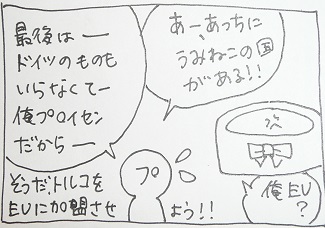 あーあっちに
うみねこの国
がある!!
最後は ー
ドイツのものも
いらなくてー
俺プロイセン
だから ー
プ
次
俺EU
?
そうだ、トルコを
EUに加盟させ
よう!!